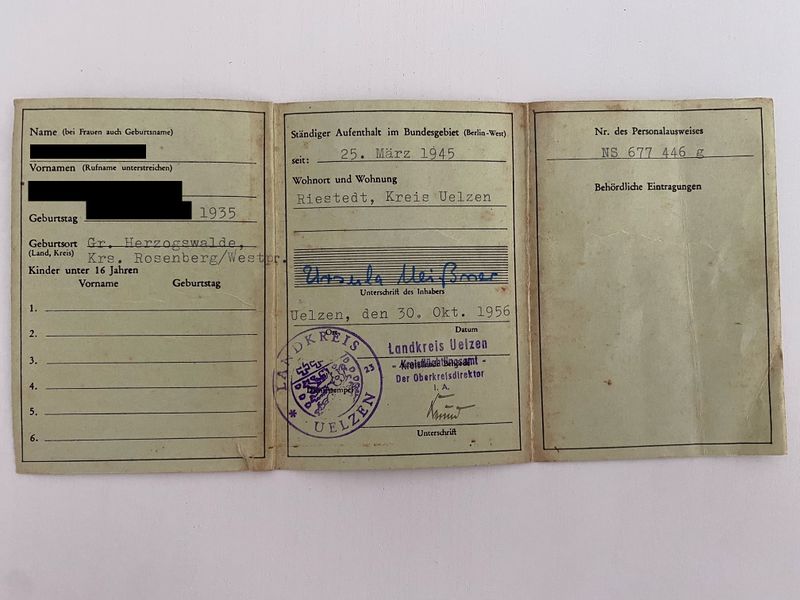 Name (bei Frauen auch Geburtsname)
Vornamen (Rufname unterstreichen)
Geburtstag 1935
Geburtsort Gr. Herzogswalde,
(Land, Kreis) Krs. Rosenberg/Westpr.
Kinder unter 16 Jahren
Vorname Geburtstag
1.
2.
3.
4.
5.
6.
Ständiger Aufenthalt im Bundesgebiet (Berlin-West)
seit: 25. März 1945
Wohnort und Wohnung
Riestedt, Kreis Uelzen
Ursula Meißner
Unterschrift des Inhabers
Uelzen, den 30. Okt. 1956
Ort Datum
LANDKREIS
23
* UELZEN
Landkreis Uelzen
- Kreisflüchtlingsamt -
Der Oberkreisdirektor
I. A.
Unterschrift
Nr. des Personalausweises
NS 677 446 g
Behördliche Eintragungen